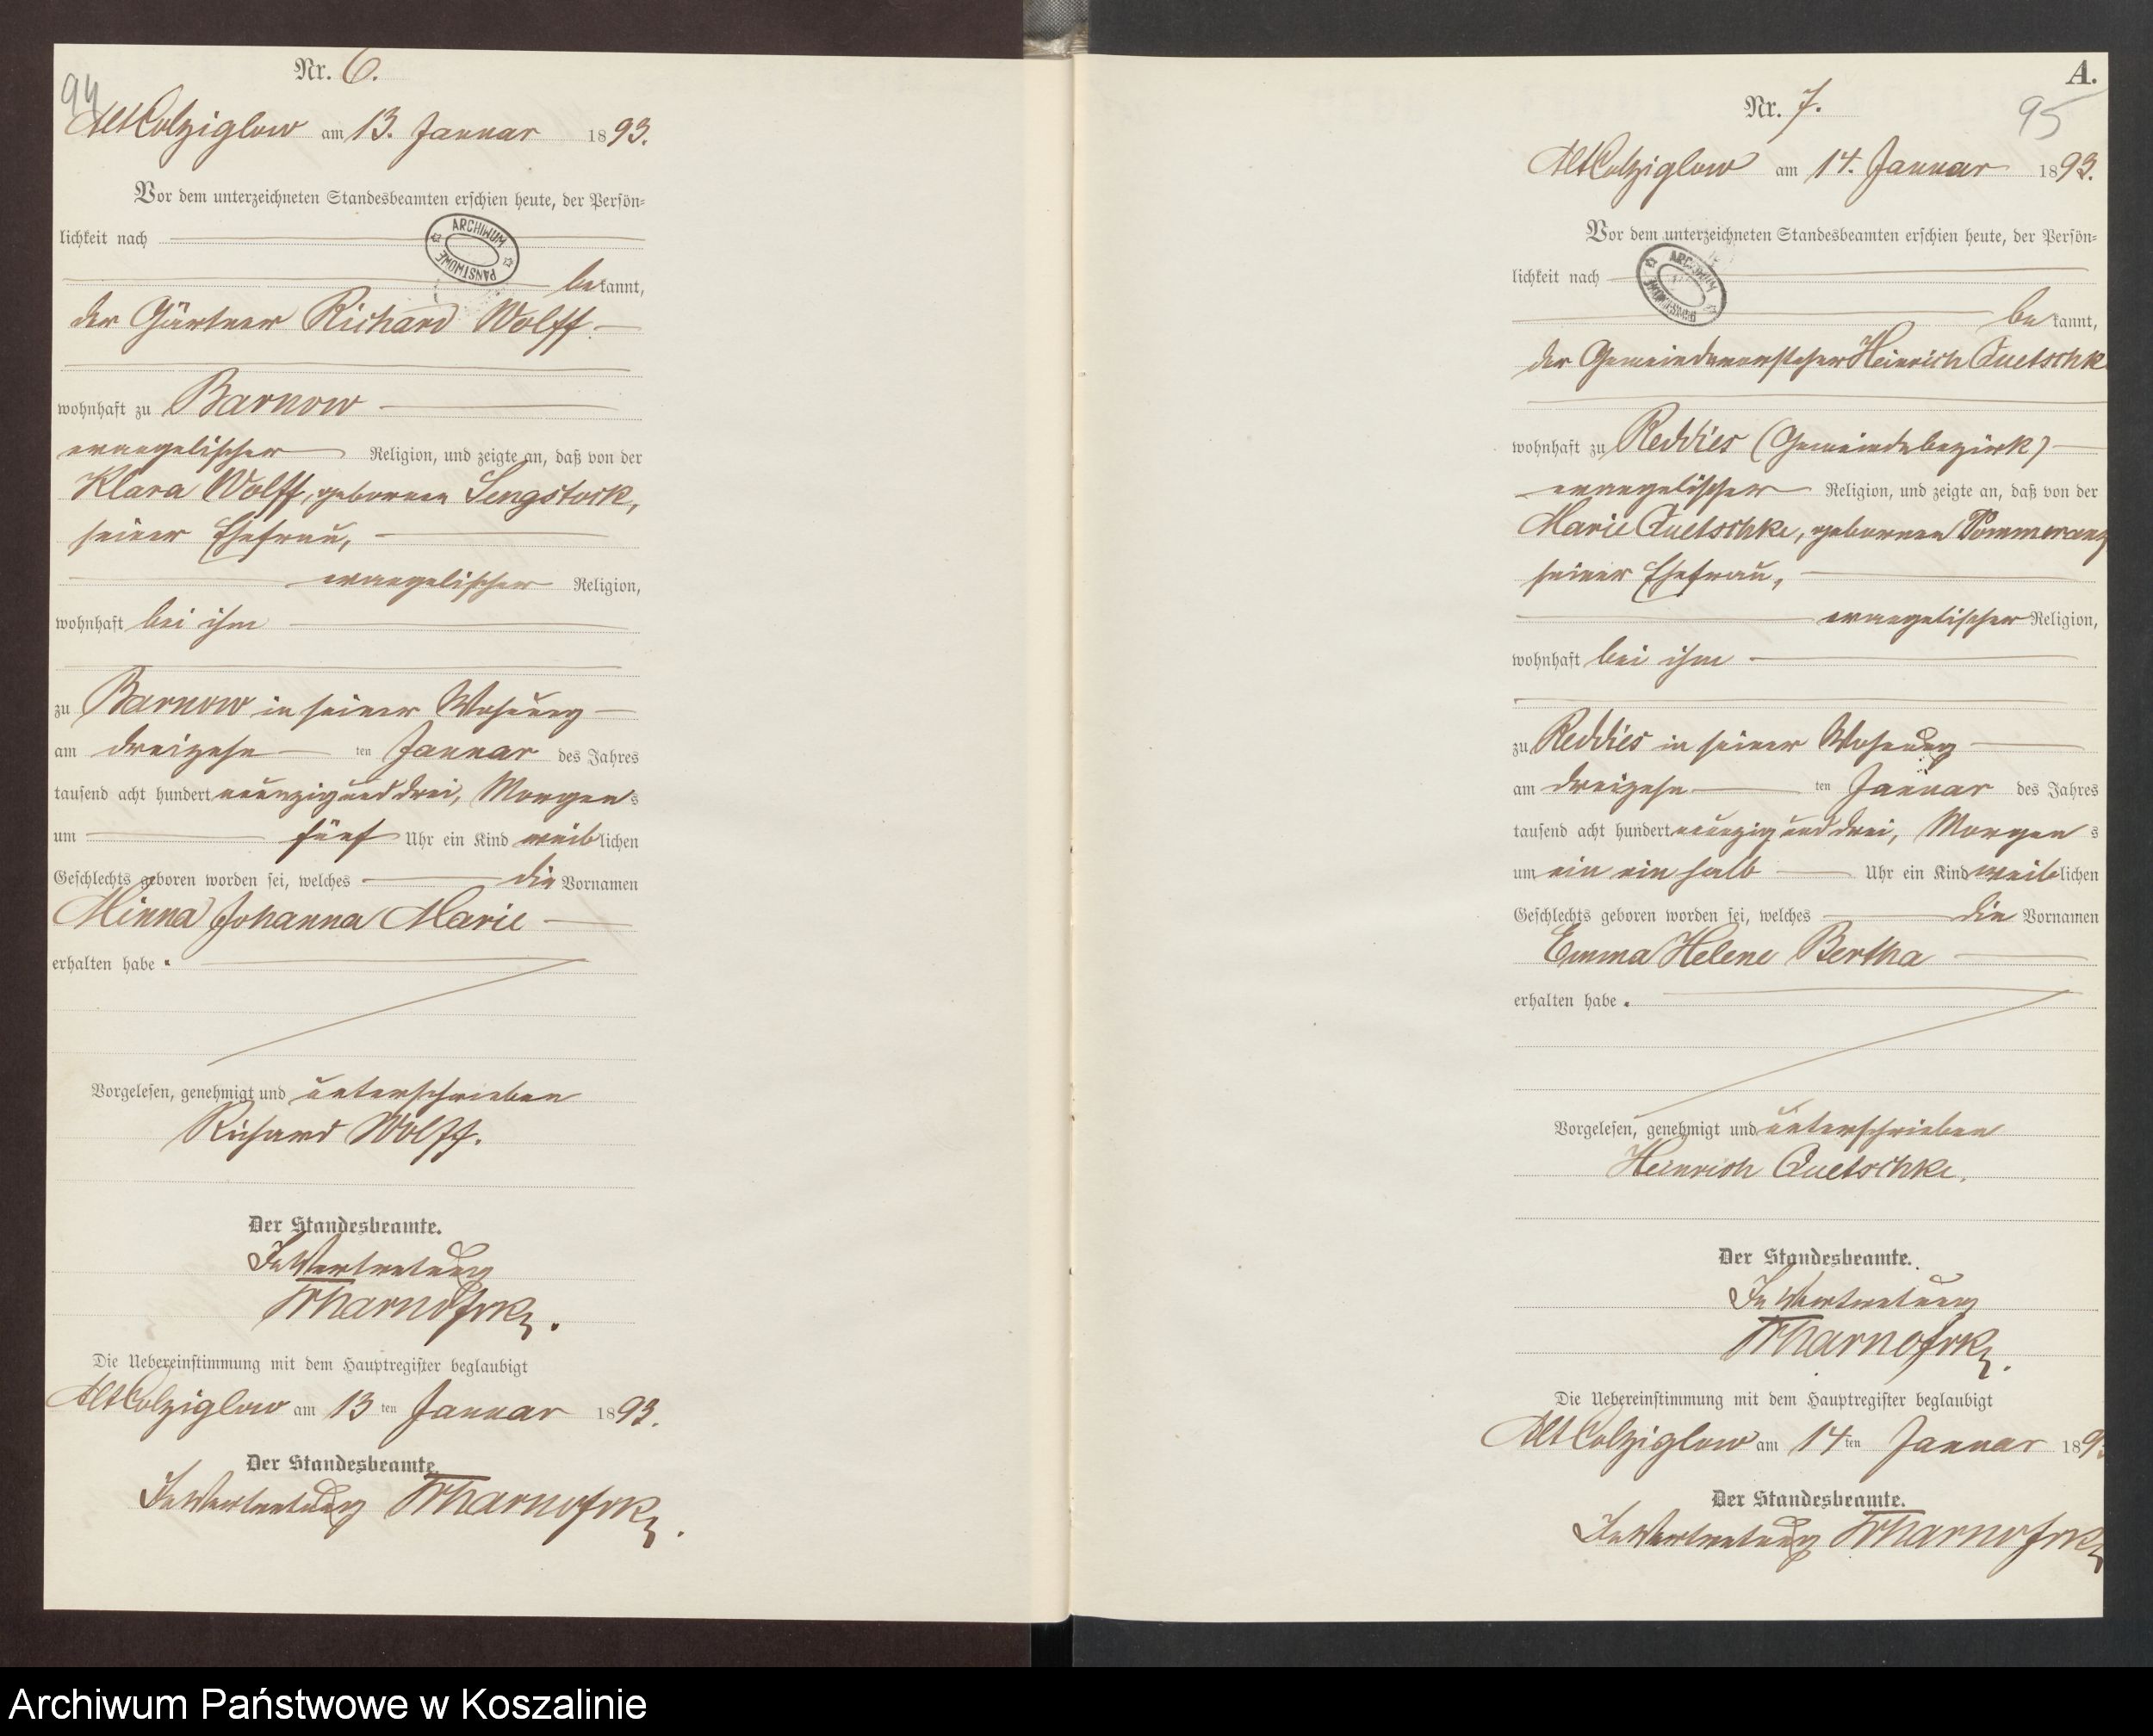 94
Nr. 6.
Alt Colziglow am 13. Januar 1893.
Vor dem unterzeichneten Standesbeamten erschien heute, der Persön=
lichkeit nach
ARCHIWUM PAŃSTWOWE
bekannt,
der Gärtner Richard Wolff
wohnhaft zu Barnow
evangelischer Religion, und zeigte an, daß von der
Klara Wolff, geborenen Sengstock,
seiner Ehefrau,
evangelischer Religion,
wohnhaft bei ihm
zu Barnow in seiner Wohnung
am dreizehn ten Januar des Jahres
tausend acht hundert neunzig und drei, Morgens
um fünf Uhr ein Kind weiblichen
Geschlechts geboren worden sei, welches die Vornamen
Minna Johanna Marie
erhalten habe.
Vorgelesen, genehmigt und unterschrieben
Richard Wolff.
Der Standesbeamte.
In Vertretung
Die Uebereinstimmung mit dem Hauptregister beglaubigt
Alt Colziglow am 13 ten Januar 1893.
Der Standesbeamte.
In Vertretung
A.
95
Nr. 7.
Alt Colziglow am 14. Januar 1893.
Vor dem unterzeichneten Standesbeamten erschien heute, der Persön=
lichkeit nach
ARCHIWUM PAŃSTWOWE
bekannt,
der Gemeindevorsteher Heinrich Quetschk
wohnhaft zu Reddies (Gemeindebezirk)
evangelischer Religion, und zeigte an, daß von der
Marie Quetschke, geborenen Pommerenz
seiner Ehefrau,
evangelischer Religion,
wohnhaft bei ihm
zu Reddies in seiner Wohnung
am dreizehn ten Januar des Jahres
tausend acht hundert neunzig und drei, Morgens
um ein ein halb Uhr ein Kind weiblichen
Geschlechts geboren worden sei, welches die Vornamen
Emma Helene Bertha
erhalten habe.
Vorgelesen, genehmigt und unterschrieben
Heinrich Quetschke.
Der Standesbeamte.
In Vertretung
Die Uebereinstimmung mit dem Hauptregister beglaubigt
Alt Colziglow am 14 ten Januar 189
Der Standesbeamte.
In Vertretung
Archiwum Państwowe w Koszalinie